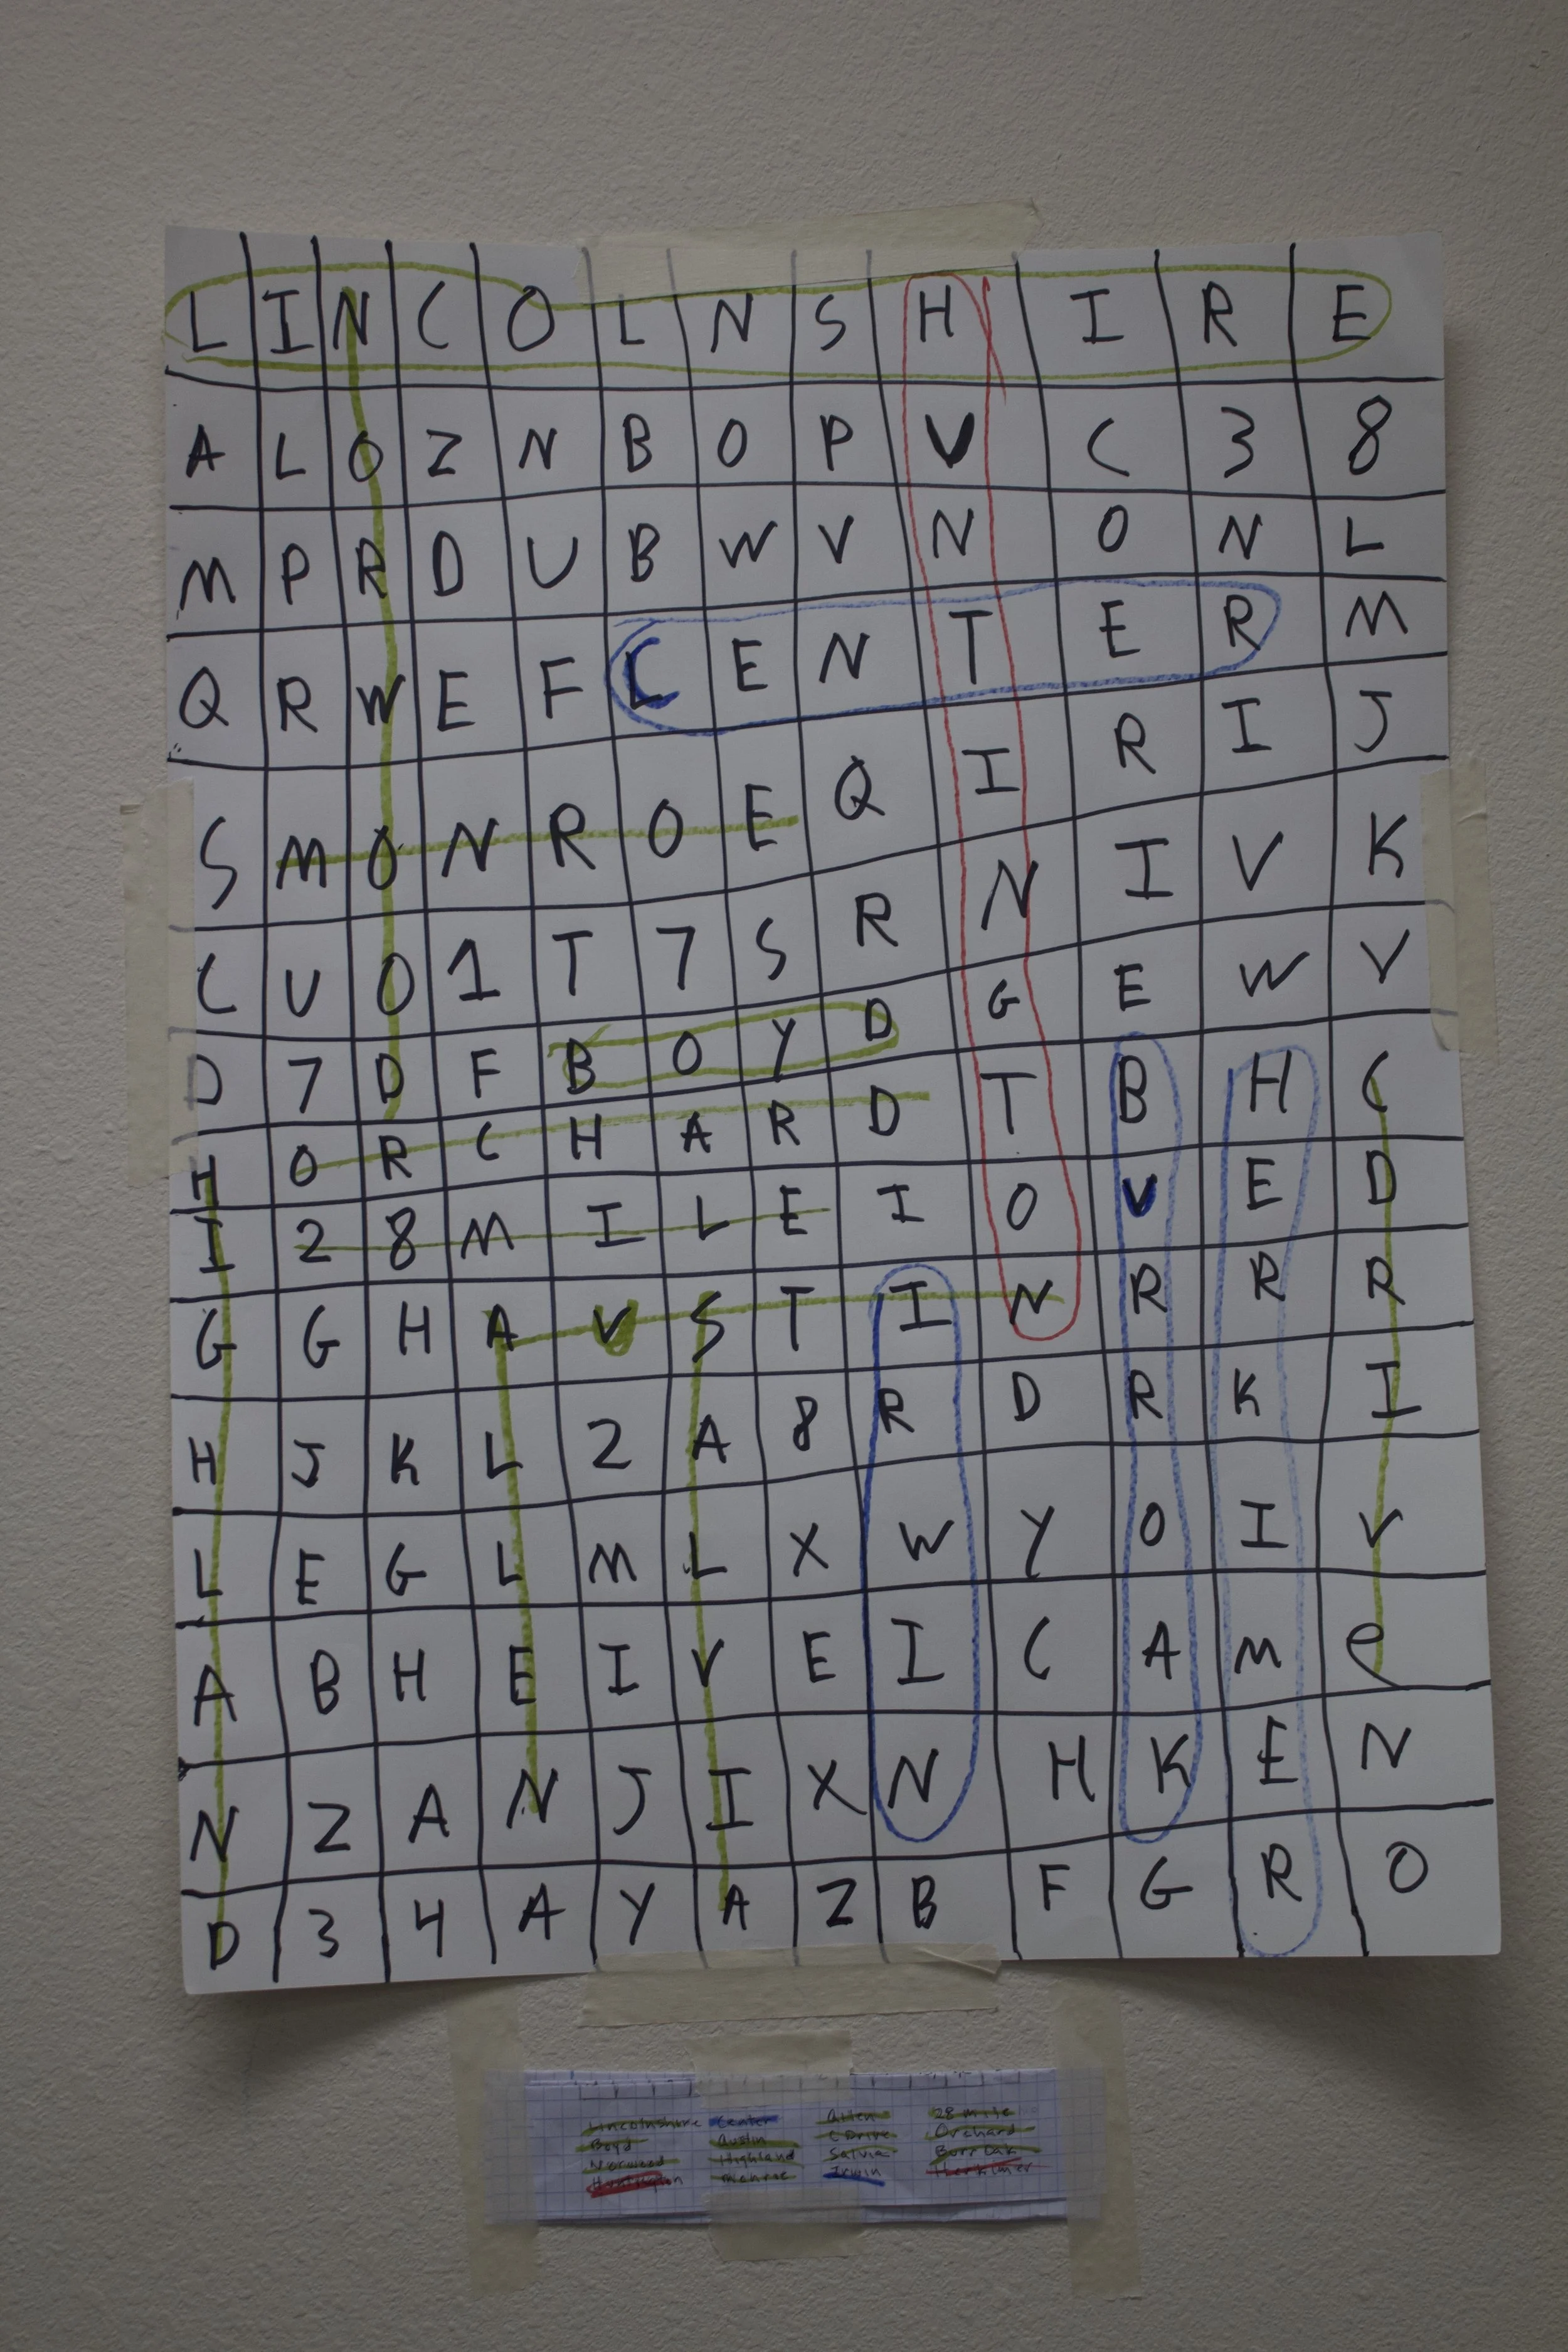 L I N C O L N S H I R E
A L O Z N B O P V C 3 8
M P R D U B W V N O N L
Q R W E F C E N T E R M
S M O N R O E Q I R I J
C U O 1 T 7 S R N I V K
D 7 D F B O Y D G E W V
H O R C H A R D T B H C
I 2 8 M I L E I O V E D
G G H A V S T I N R R R
H J K L 2 A 8 R D R K I
L E G L M L X W Y O I V
A B H E I V E I C A M e
N Z A N J I X N H K E N
D 3 4 A Y A Z B F G R O
Lincolnshire Center Allen 28 mile
Boyd Austin C Drive Orchard
Norwood Highland Salvia Burr Oak
Huntington Monroe Irwin Herkimer